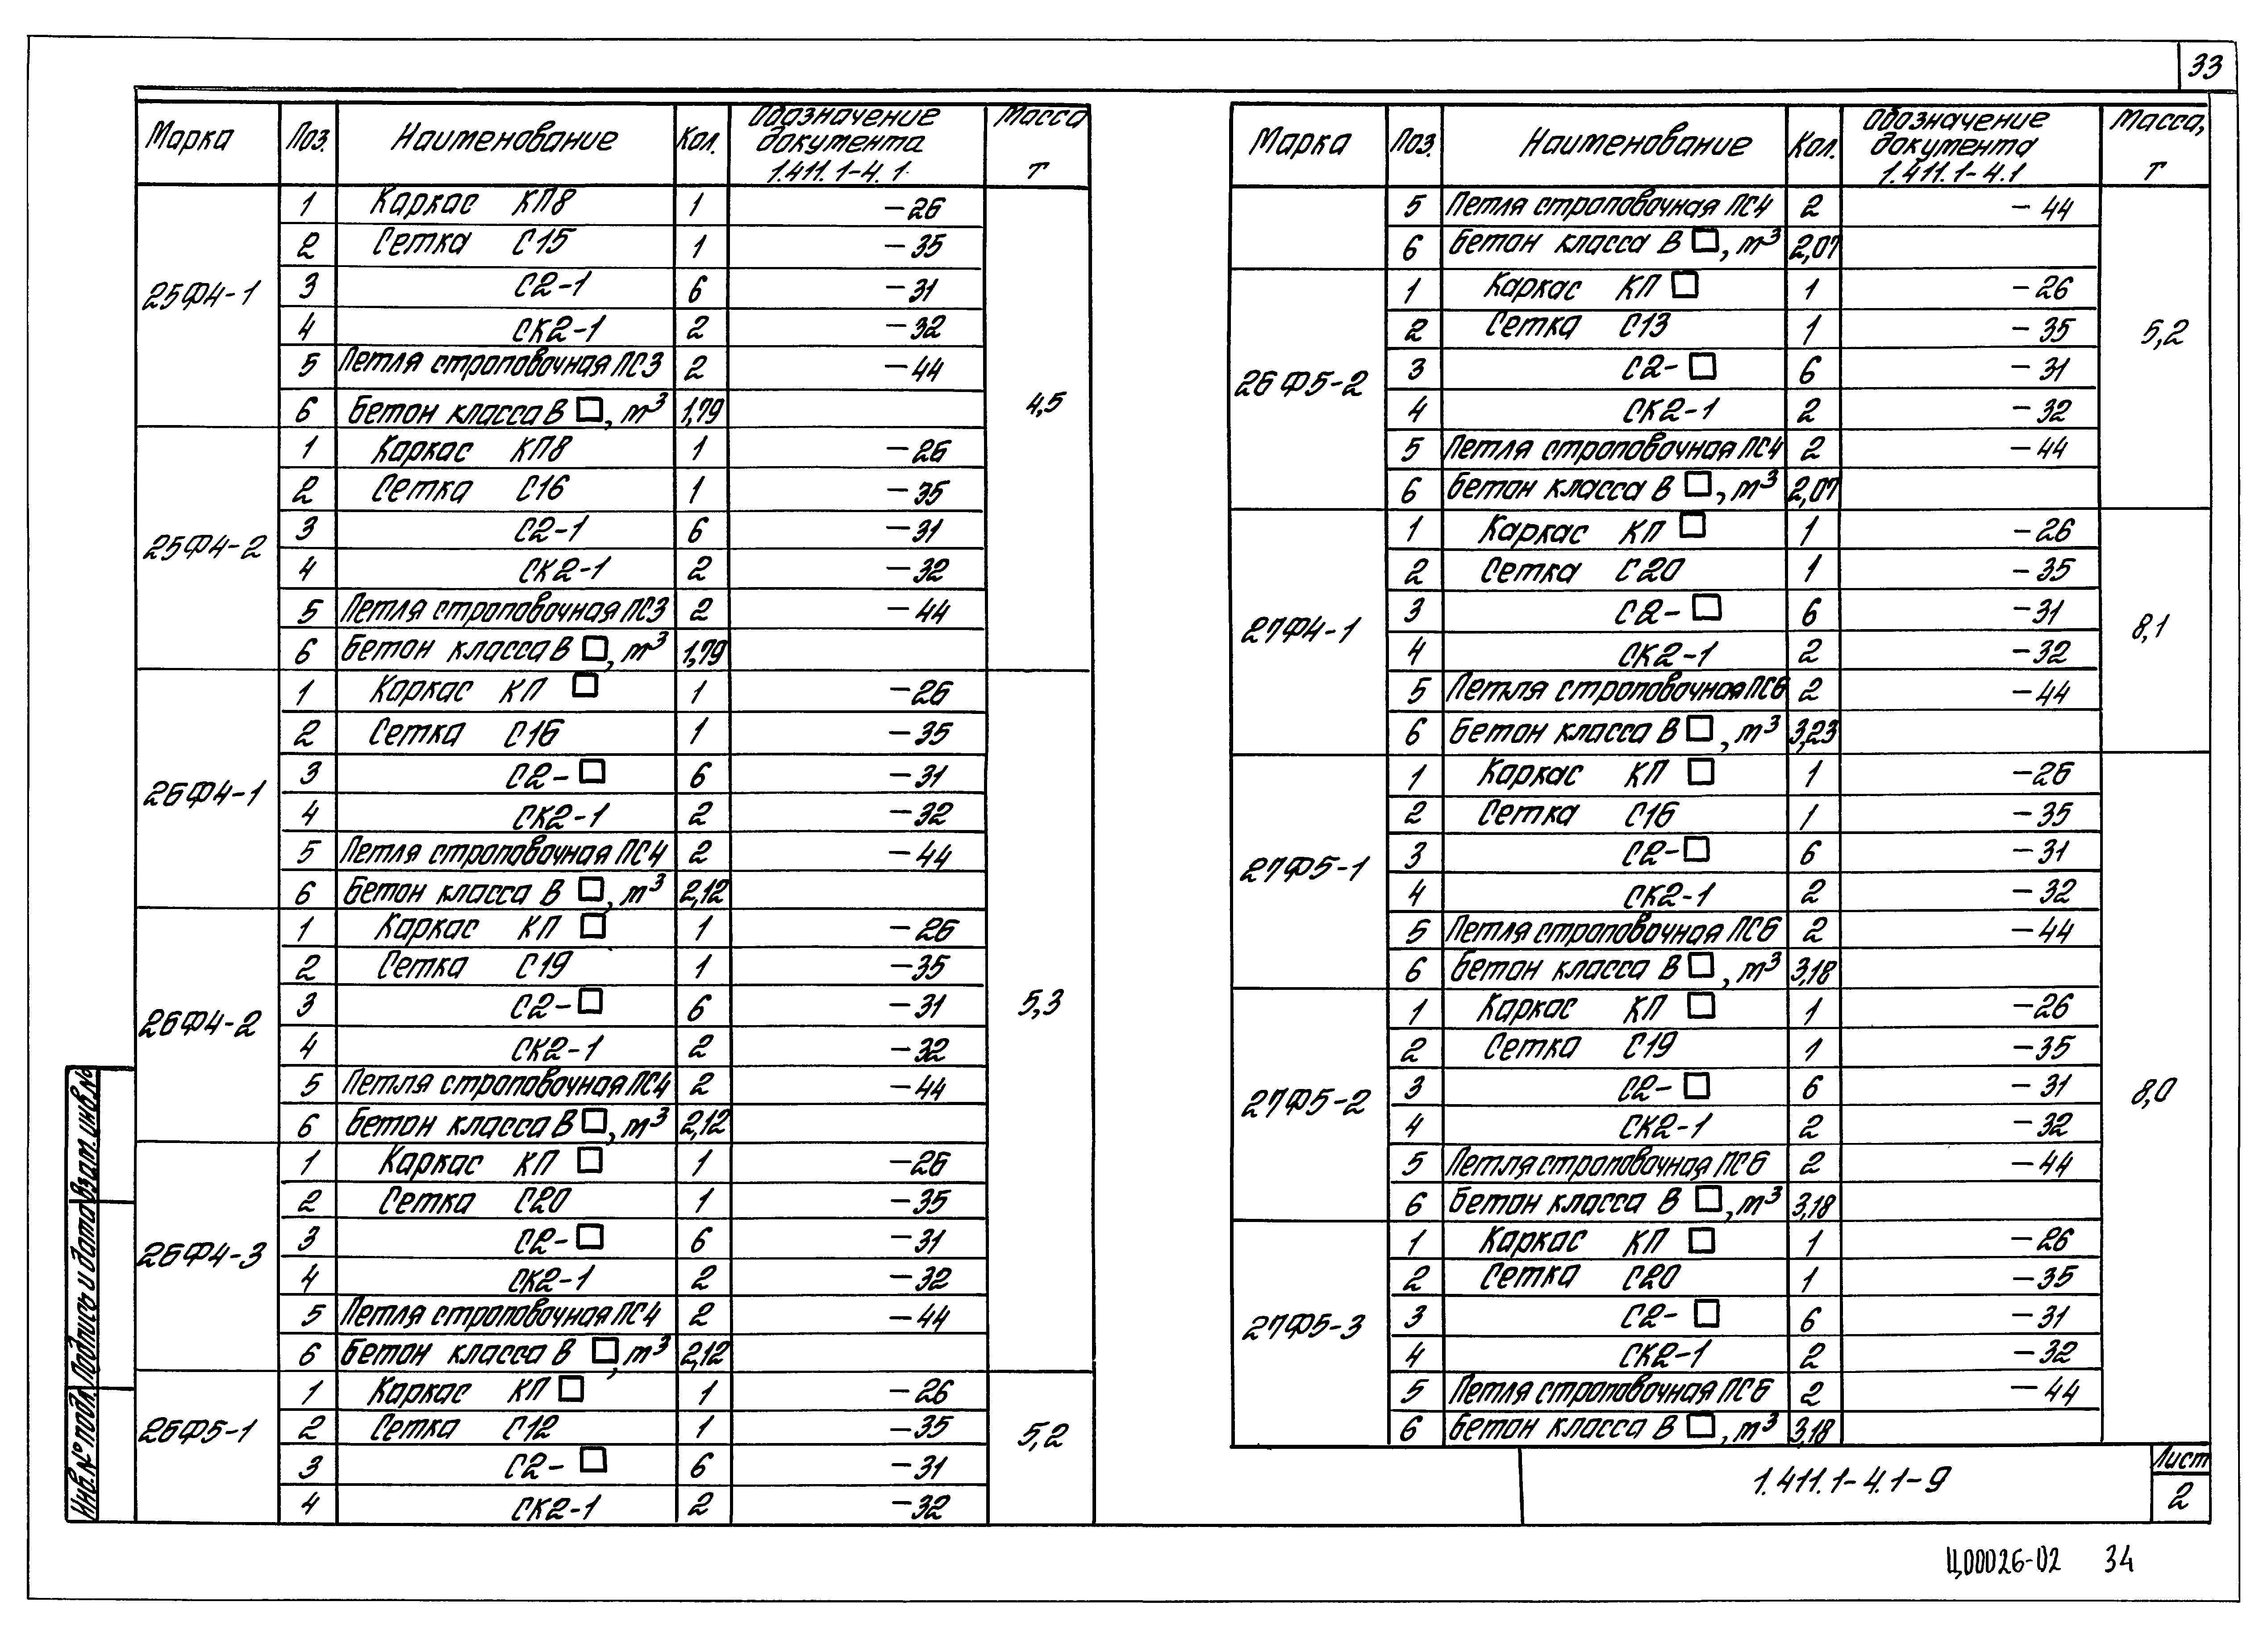 33
Марка Поз. Наименование Кол. Обозначение документа 1.411.1-4.1 Масса т
25Ф4-1
1 Каркас КП8 1 -26
2 Сетка С15 1 -35
3 С2-1 6 -31
4 СК2-1 2 -32
5 Петля строповочная ПС3 2 -44
6 Бетон класса В □, м³ 1,79
4,5
25Ф4-2
1 Каркас КП8 1 -26
2 Сетка С16 1 -35
3 С2-1 6 -31
4 СК2-1 2 -32
5 Петля строповочная ПС3 2 -44
6 Бетон класса В □, м³ 1,79
26Ф4-1
1 Каркас КП □ 1 -26
2 Сетка С16 1 -35
3 С2-□ 6 -31
4 СК2-1 2 -32
5 Петля строповочная ПС4 2 -44
6 Бетон класса В □, м³ 2,12
26Ф4-2
1 Каркас КП □ 1 -26
2 Сетка С19 1 -35
3 С2-□ 6 -31
4 СК2-1 2 -32
5 Петля строповочная ПС4 2 -44
6 Бетон класса В □, м³ 2,12
5,3
26Ф4-3
1 Каркас КП □ 1 -26
2 Сетка С20 1 -35
3 С2-□ 6 -31
4 СК2-1 2 -32
5 Петля строповочная ПС4 2 -44
6 Бетон класса В □, м³ 2,12
26Ф5-1
1 Каркас КП □ 1 -26
2 Сетка С12 1 -35
3 С2-□ 6 -31
4 СК2-1 2 -32
5,2
Марка Поз. Наименование Кол. Обозначение документа 1.411.1-4.1 Масса, т
5 Петля строповочная ПС4 2 -44
6 Бетон класса В □, м³ 2,07
26Ф5-2
1 Каркас КП □ 1 -26
2 Сетка С13 1 -35
3 С2-□ 6 -31
4 СК2-1 2 -32
5 Петля строповочная ПС4 2 -44
6 Бетон класса В □, м³ 2,07
5,2
27Ф4-1
1 Каркас КП □ 1 -26
2 Сетка С20 1 -35
3 С2-□ 6 -31
4 СК2-1 2 -32
5 Петля строповочная ПС6 2 -44
6 Бетон класса В □, м³ 3,23
8,1
27Ф5-1
1 Каркас КП □ 1 -26
2 Сетка С16 1 -35
3 С2-□ 6 -31
4 СК2-1 2 -32
5 Петля строповочная ПС6 2 -44
6 Бетон класса В □, м³ 3,18
27Ф5-2
1 Каркас КП □ 1 -26
2 Сетка С19 1 -35
3 С2-□ 6 -31
4 СК2-1 2 -32
5 Петля строповочная ПС6 2 -44
6 Бетон класса В □, м³ 3,18
8,0
27Ф5-3
1 Каркас КП □ 1 -26
2 Сетка С20 1 -35
3 С2-□ 6 -31
4 СК2-1 2 -32
5 Петля строповочная ПС6 2 -44
6 Бетон класса В □, м³ 3,18
Инв.№ подл. Подпись и дата Взам.инв.№
1.411.1-4.1-9
Лист
2
Ц00026-02 34